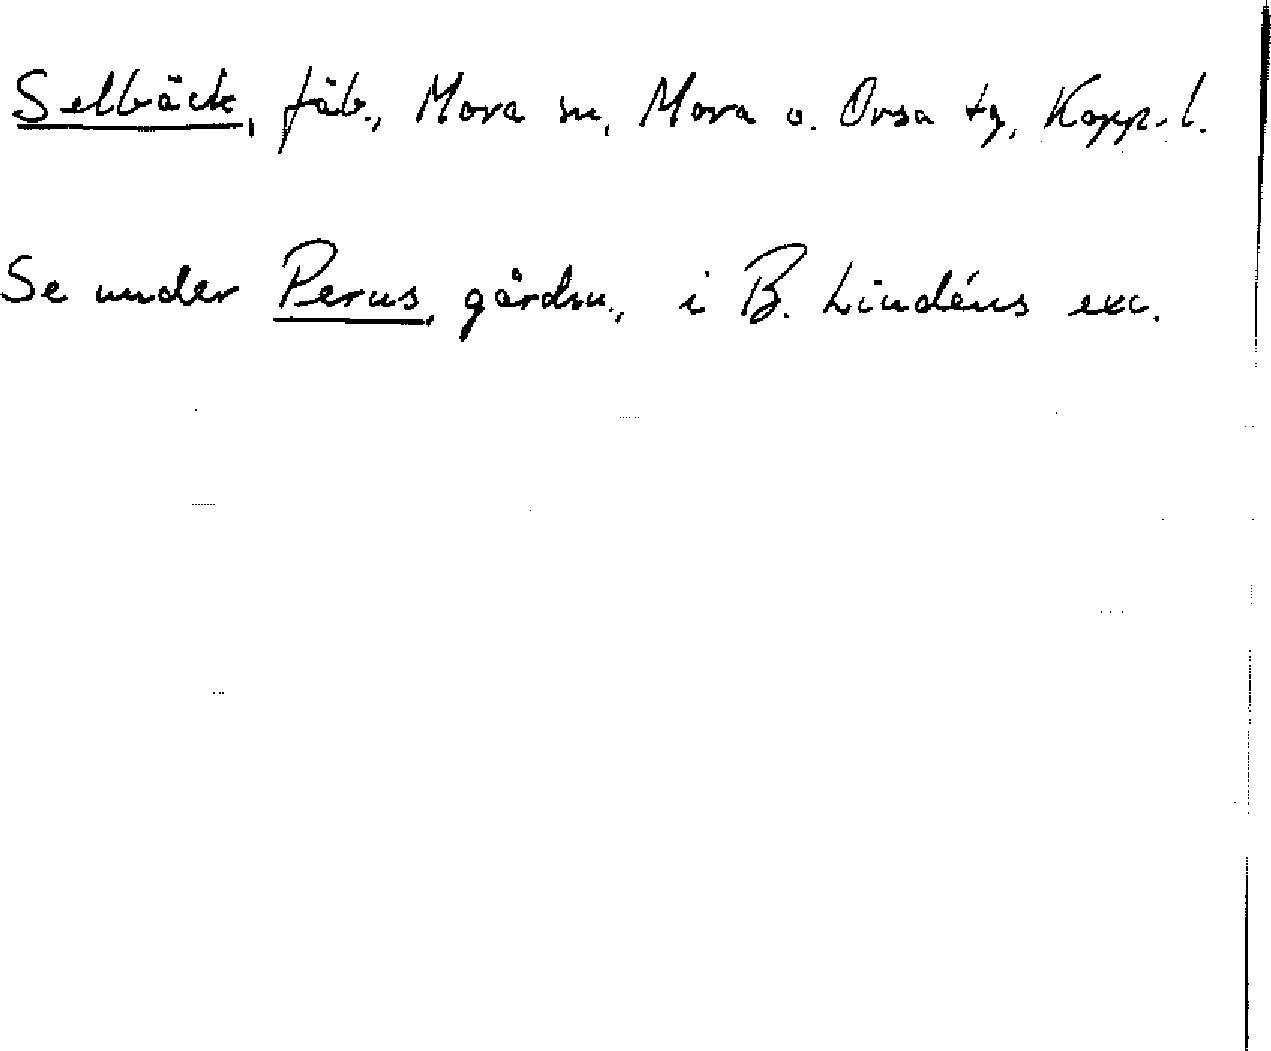 Selbäck, fäb., Mora sn, Mora o. Orsa tg, Kopp. l.
Se under Perus, gårdsn., i B. Lindéns exc.